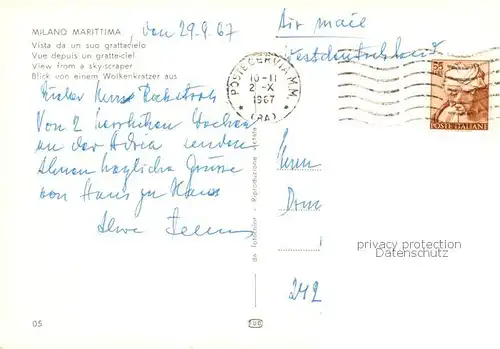 MILANO MARITTIMA , den 29.9.67
Vista da un suo grattacielo
Vue depuis un gratte-ciel
View from a sky-scraper
Blick von einem Wolkenkratzer aus
Air mail
Westdeutschland
POSTE CERVIA M.M.
10-11
2 -X
1967
(RA)
55
POSTE ITALIANE
Lieber Herr
Von 2 herrlichen Wochen
an der Adria senden
Ihnen herzliche Grüße
von Haus zu Haus
Ihre
Herrn
Dom
242
da fotocolor - Riproduzione vietata
privacy protection
Datenschutz
05